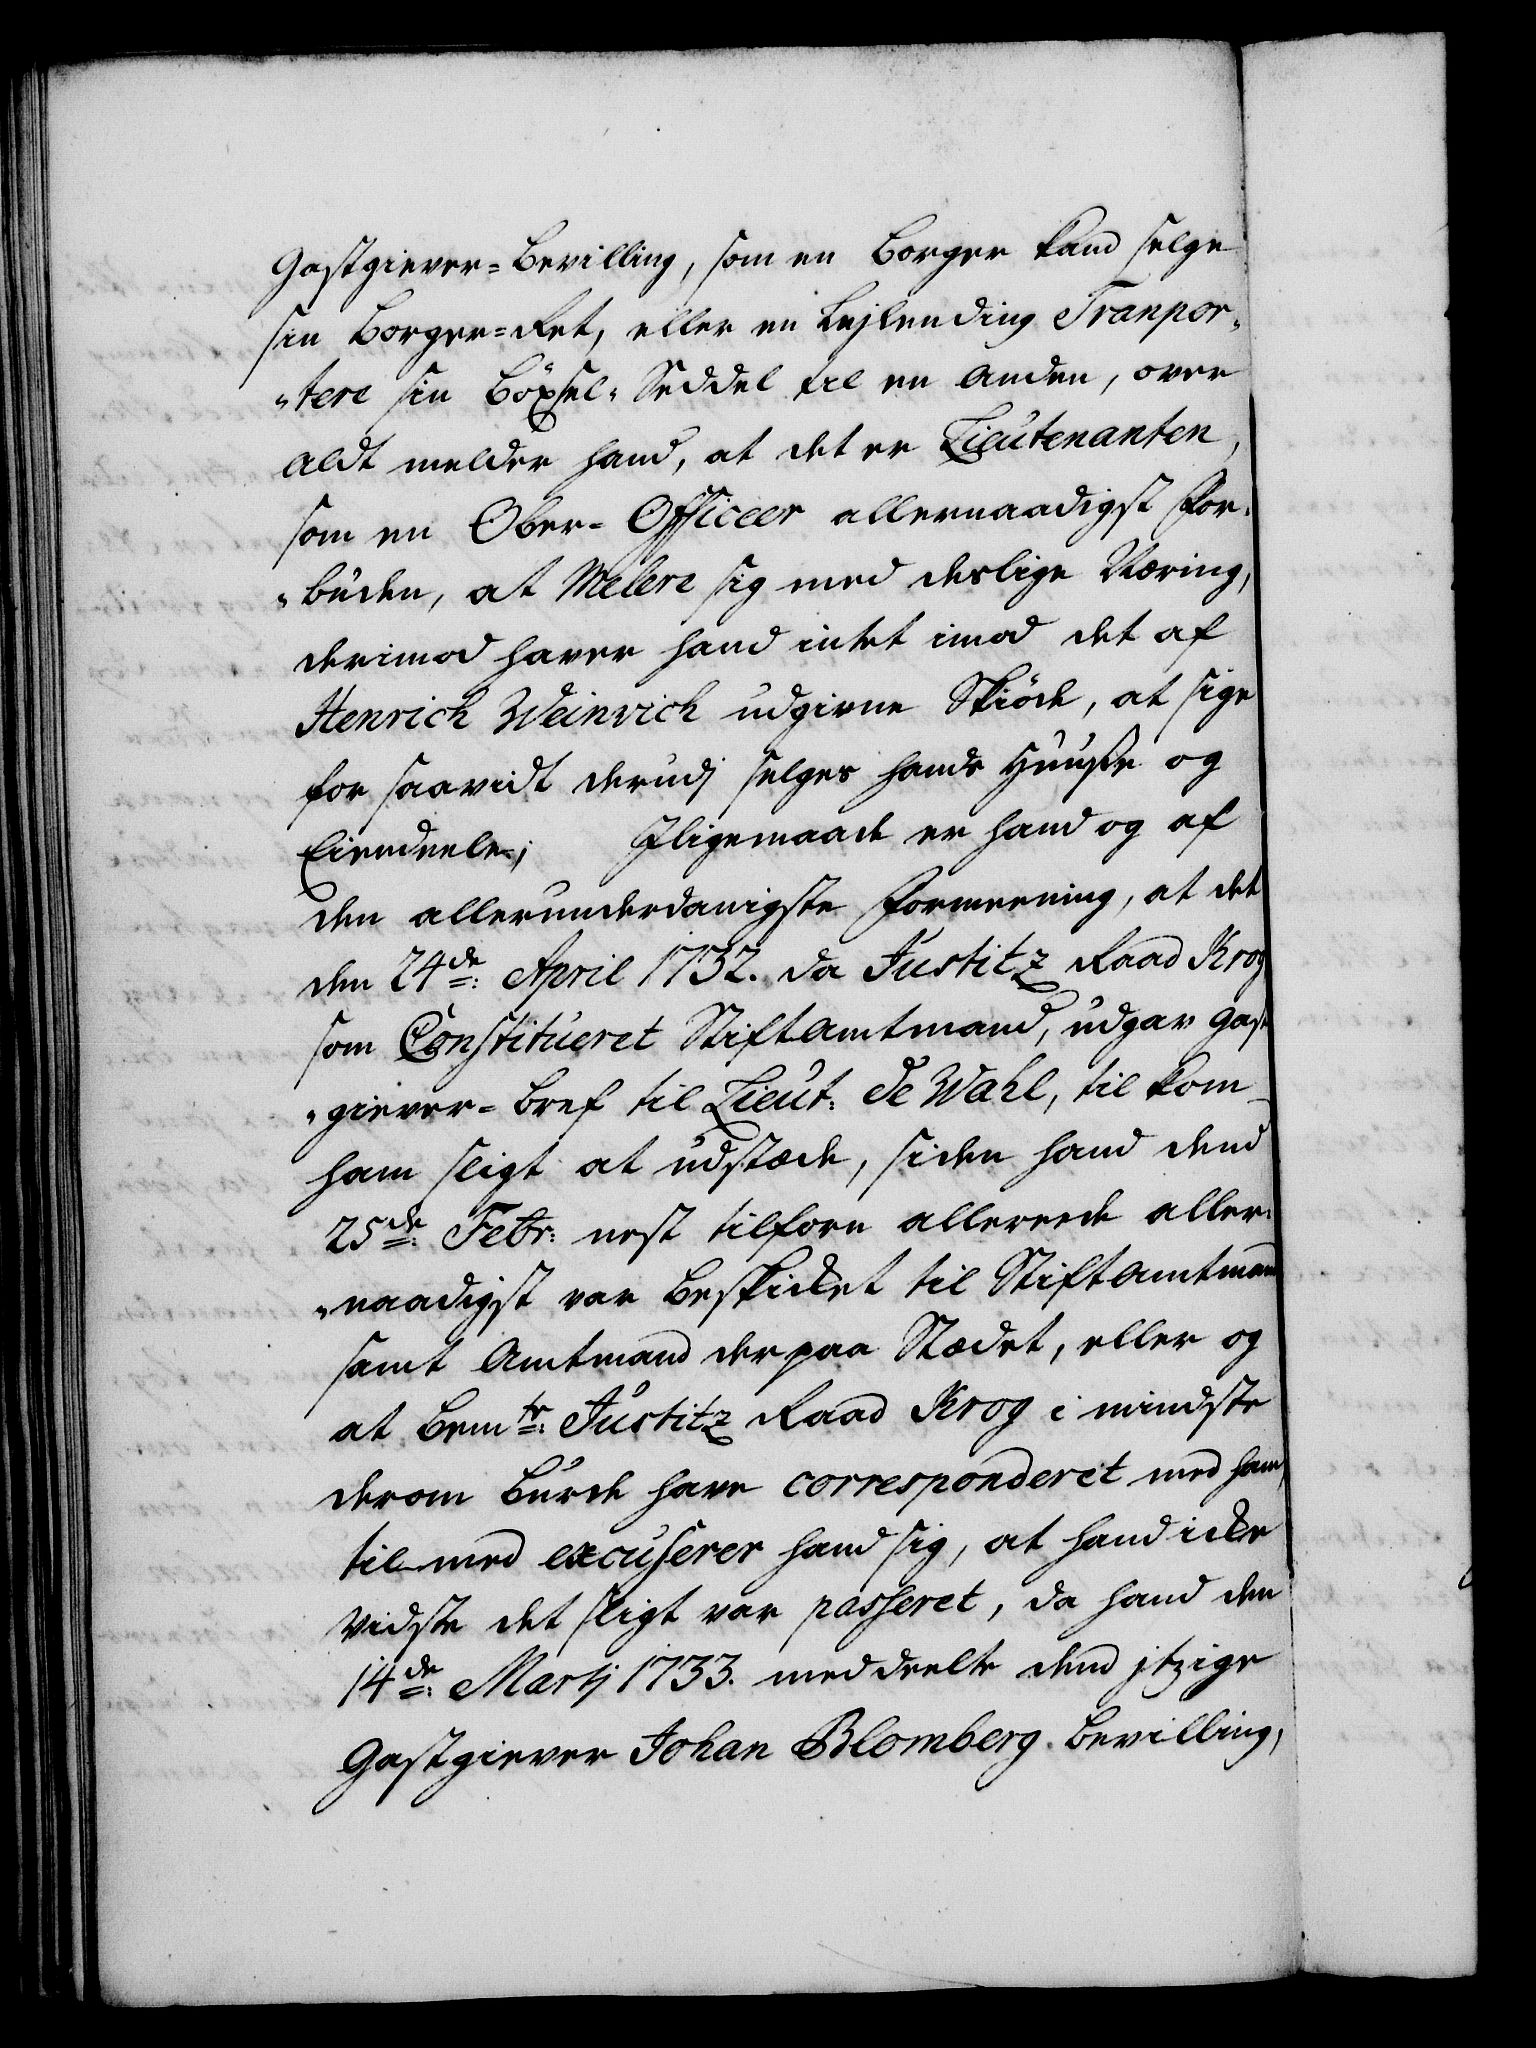 Gastgiever=Bevilling, som en Borger kand selge
sin Borger=Ret, eller en Lejlending Tranpor„
„tere sin Böxsel„ Seddel til en anden, over
aldt melder hand, at det er Lieutenanten,
som en Ober- Officeer allernaadigst for„
„buden, at Melere sig med deslige Næring,
derimod haver hand intet imod det af
Henrich Weinrich udgivne Skiöde, at sige
for saavidt derudj selges hands Huuse og
Eiendeele; Jligemaade er hand og af
den allerunderdanigste Formeening, at det
den 24de: April 1732. da Justitz Raad Krog
som Constitueret Stiftamtmand, udgav gast
„giever=bref til Lieut: de Wahl, til kom
ham sligt at udstæde, siden hand dend
25de: Febr: nest tilforn allereede aller„
„naadigst var Beskicket til Stiftamtmand
samt Amtmand der paa Stædet, eller og
at bemte: Justitz Raad Krog i mindste
derom burde have corresponderet med ham,
til med excuserer hand sig, at hand icke
vidste det sligt var passeret, da hand den
14de: Martj 1733. meddeelte dend jtzige
Gastgiever Johan Blomberg bevilling,